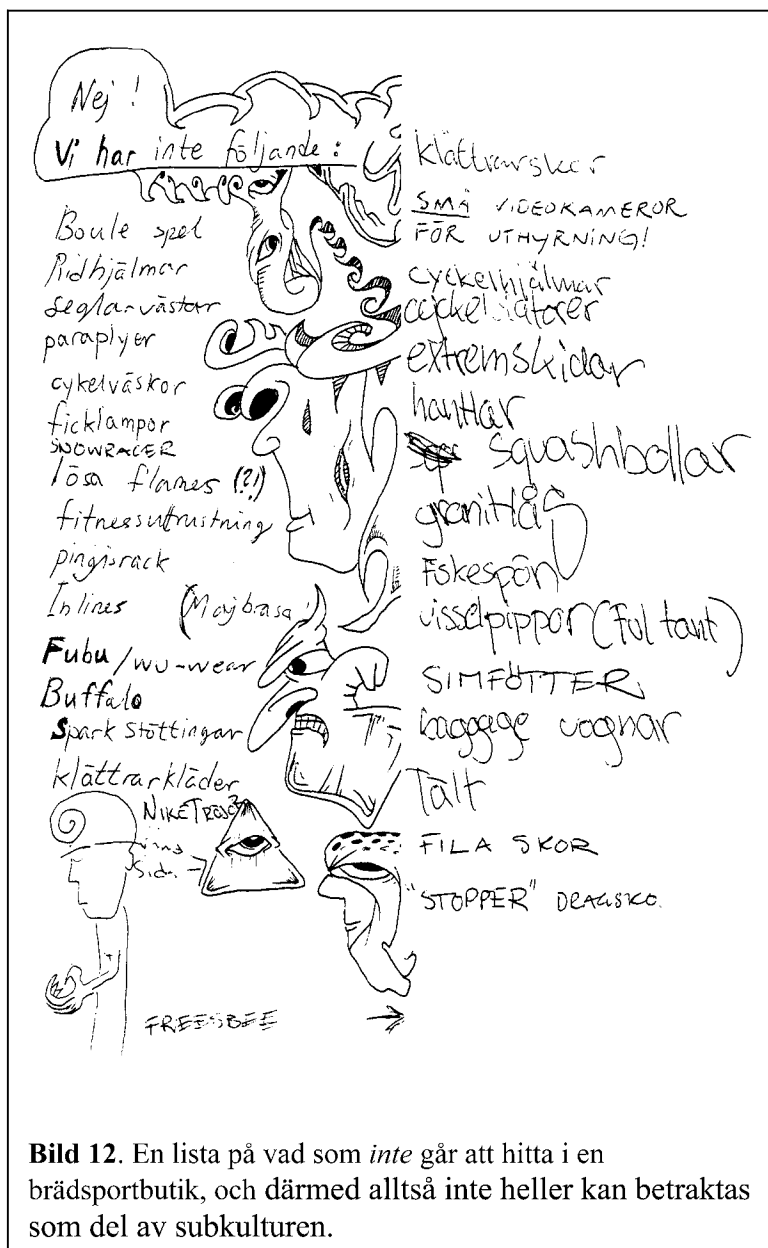 Nej !
Vi har inte följande :
Boule spel
Ridhjälmar
seglarvästar
paraplyer
cykelväskor
ficklampor
SNOWRACER
lösa flames (?!)
fitnessutrustning
pingisrack
Inlines (Majbrasa)
Fubu / wu-wear
Buffalo
Spark Stöttingar
klättrarkläder
NIKE
FREESBEE
klättrarskor
SMÅ VIDEOKAMEROR
FÖR UTHYRNING!
cyckelhjälmar
extremskidor
hantlar
squashbollar
Fiskespön
visselpippor (Ful tant)
SIMFÖTTER
baggage vagnar
Tält
FILA SKOR
"STOPPER" DRAGSKO.
Bild 12. En lista på vad som inte går att hitta i en
brädsportbutik, och därmed alltså inte heller kan betraktas
som del av subkulturen.